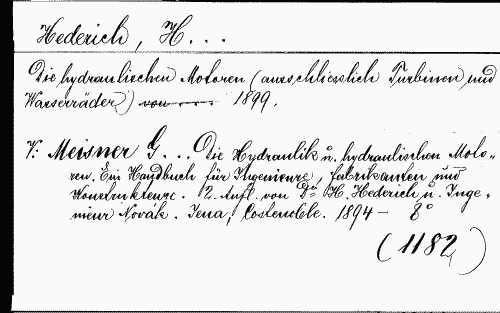 Hederich, H...
Die hydraulischen Motoren (ausschliesslich Turbinen und
Wasserräder) von .... 1899.
V: Meisner G... Die Hydraulik u. hydraulischen Moto-
ren. Ein Handbuch für Ingenieure, Fabrikanten und
Konstrukteure. 2. Aufl. von Dr. H. Hederich u. Inge-
nieur Novák. Jena, Costenoble. 1894 – 8°
(1182)